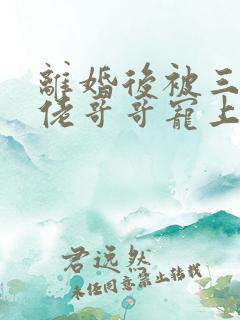 離婚後被三
佬哥哥寵上
君远然
未经同意禁止转载